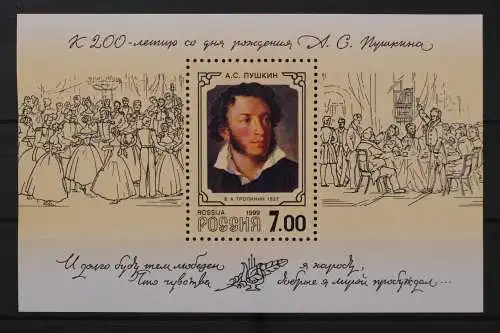 К 200-летию со дня рождения А. С. Пушкина
А.С. ПУШКИН
В. А. ТРОПИНИН 1827
ROSSIJA 1999
РОССИЯ 7.00
И долго буду тем любезен я народу,
Что чувства добрые я лирой пробуждал...